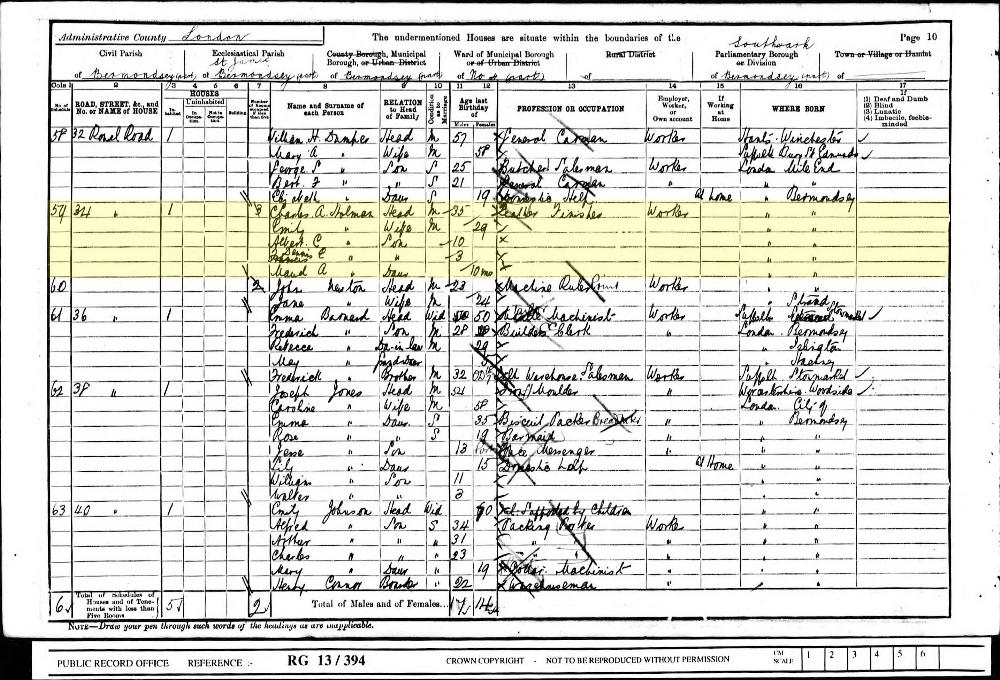 Administrative County London
The undermentioned Houses are situate within the boundaries of the
Page 10
Civil Parish
of Bermondsey (part)
Ecclesiastical Parish
St James
of Bermondsey (part)
County Borough, Municipal Borough, or Urban District
of Bermondsey (part)
Ward of Municipal Borough or of Urban District
of No 2 (part)
Rural District
of
Southwark
Parliamentary Borough or Division
of Bermondsey (part)
Town or Village or Hamlet
of
Cols 1 2 3 4 5 6 7 8 9 10 11 12 13 14 15 16 17
No. of Schedule
ROAD, STREET, &c., and No. or NAME of HOUSE
HOUSES
Inhabited
Uninhabited
In Occupation
Not in Occupation
Building
Name and Surname of each Person
RELATION to Head of Family
Condition as to Marriage
Age last Birthday of
Males Females
PROFESSION OR OCCUPATION
Employer, Worker, or Own account
If Working at Home
WHERE BORN
(1) Deaf and Dumb
(2) Blind
(3) Lunatic
(4) Imbecile, feeble-minded
58 32 Rd 1 William H. Head M 57 General Carman Worker Hants Winchester
Mary A " Wife M 58 Suffolk Bury St Edmunds
George " Son S 25 Butchers Salesman Worker London Mile End
Bert F " " S 21 General Carman " " "
Elizabeth " Daur S 19 Domestic Help At Home " Bermondsey
59 34 " 1 3 Charles A. Holman Head M 35 Leather Finisher Worker " "
Emily " Wife M 29 " "
Albert C " Son 10 " "
Francis Dennis C " " 3 " "
Maud A " Daur 10 mo " "
60 2 John Newton Head M 23 Machine Ruler Worker " "
Jane " Wife M 24 " Strand
61 36 " 1 Emma Barnard Head Wid 50 Machinist " Suffolk Stowmarket
Frederick " Son M 28 Builders Clerk " London Bermondsey
Rebecca " Da-in-law M 29 " Islington
May " Grand daur 3 " Hackney
Frederick " Brother M 32 Warehouse Salesman Worker Suffolk Stowmarket
62 38 " 1 Joseph Jones Head M 54 Iron Moulder " Worcestershire Woodside
Caroline " Wife M 58 London City of
Emma " Daur S 35 Biscuit Packer " " Bermondsey
Rose " " S 19 Barmaid " " "
Jesse " Son 13 Messenger " " "
Lily " Daur 15 Domestic Help At Home " "
William " Son 11 " "
Walter " " 2 " "
63 40 " 1 Emily Johnson Head Wid 70 Supported by Children " "
Alfred " Son S 34 Packing Worker " "
Arthur " " " 31 " " " "
Charles " " " 23 " " " "
Mary " Daur " 19 Machinist " " "
Henry Connor Boarder " 22 Warehouseman " " "
6 Total of Schedules of Houses and of Tenements with less than Five Rooms 5 2 Total of Males and of Females... 17 14
NOTE—Draw your pen through such words of the headings as are inapplicable.
PUBLIC RECORD OFFICE REFERENCE :- RG 13 / 394 CROWN COPYRIGHT - NOT TO BE REPRODUCED WITHOUT PERMISSION CM SCALE 1 2 3 4 5 6